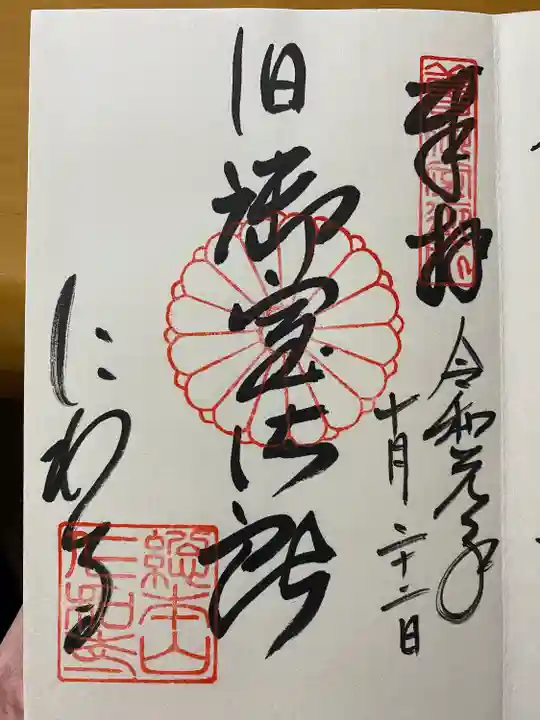 奉拝
令和元年
十月二十二日
旧御室御所
にわか寺
総本山
仁和寺